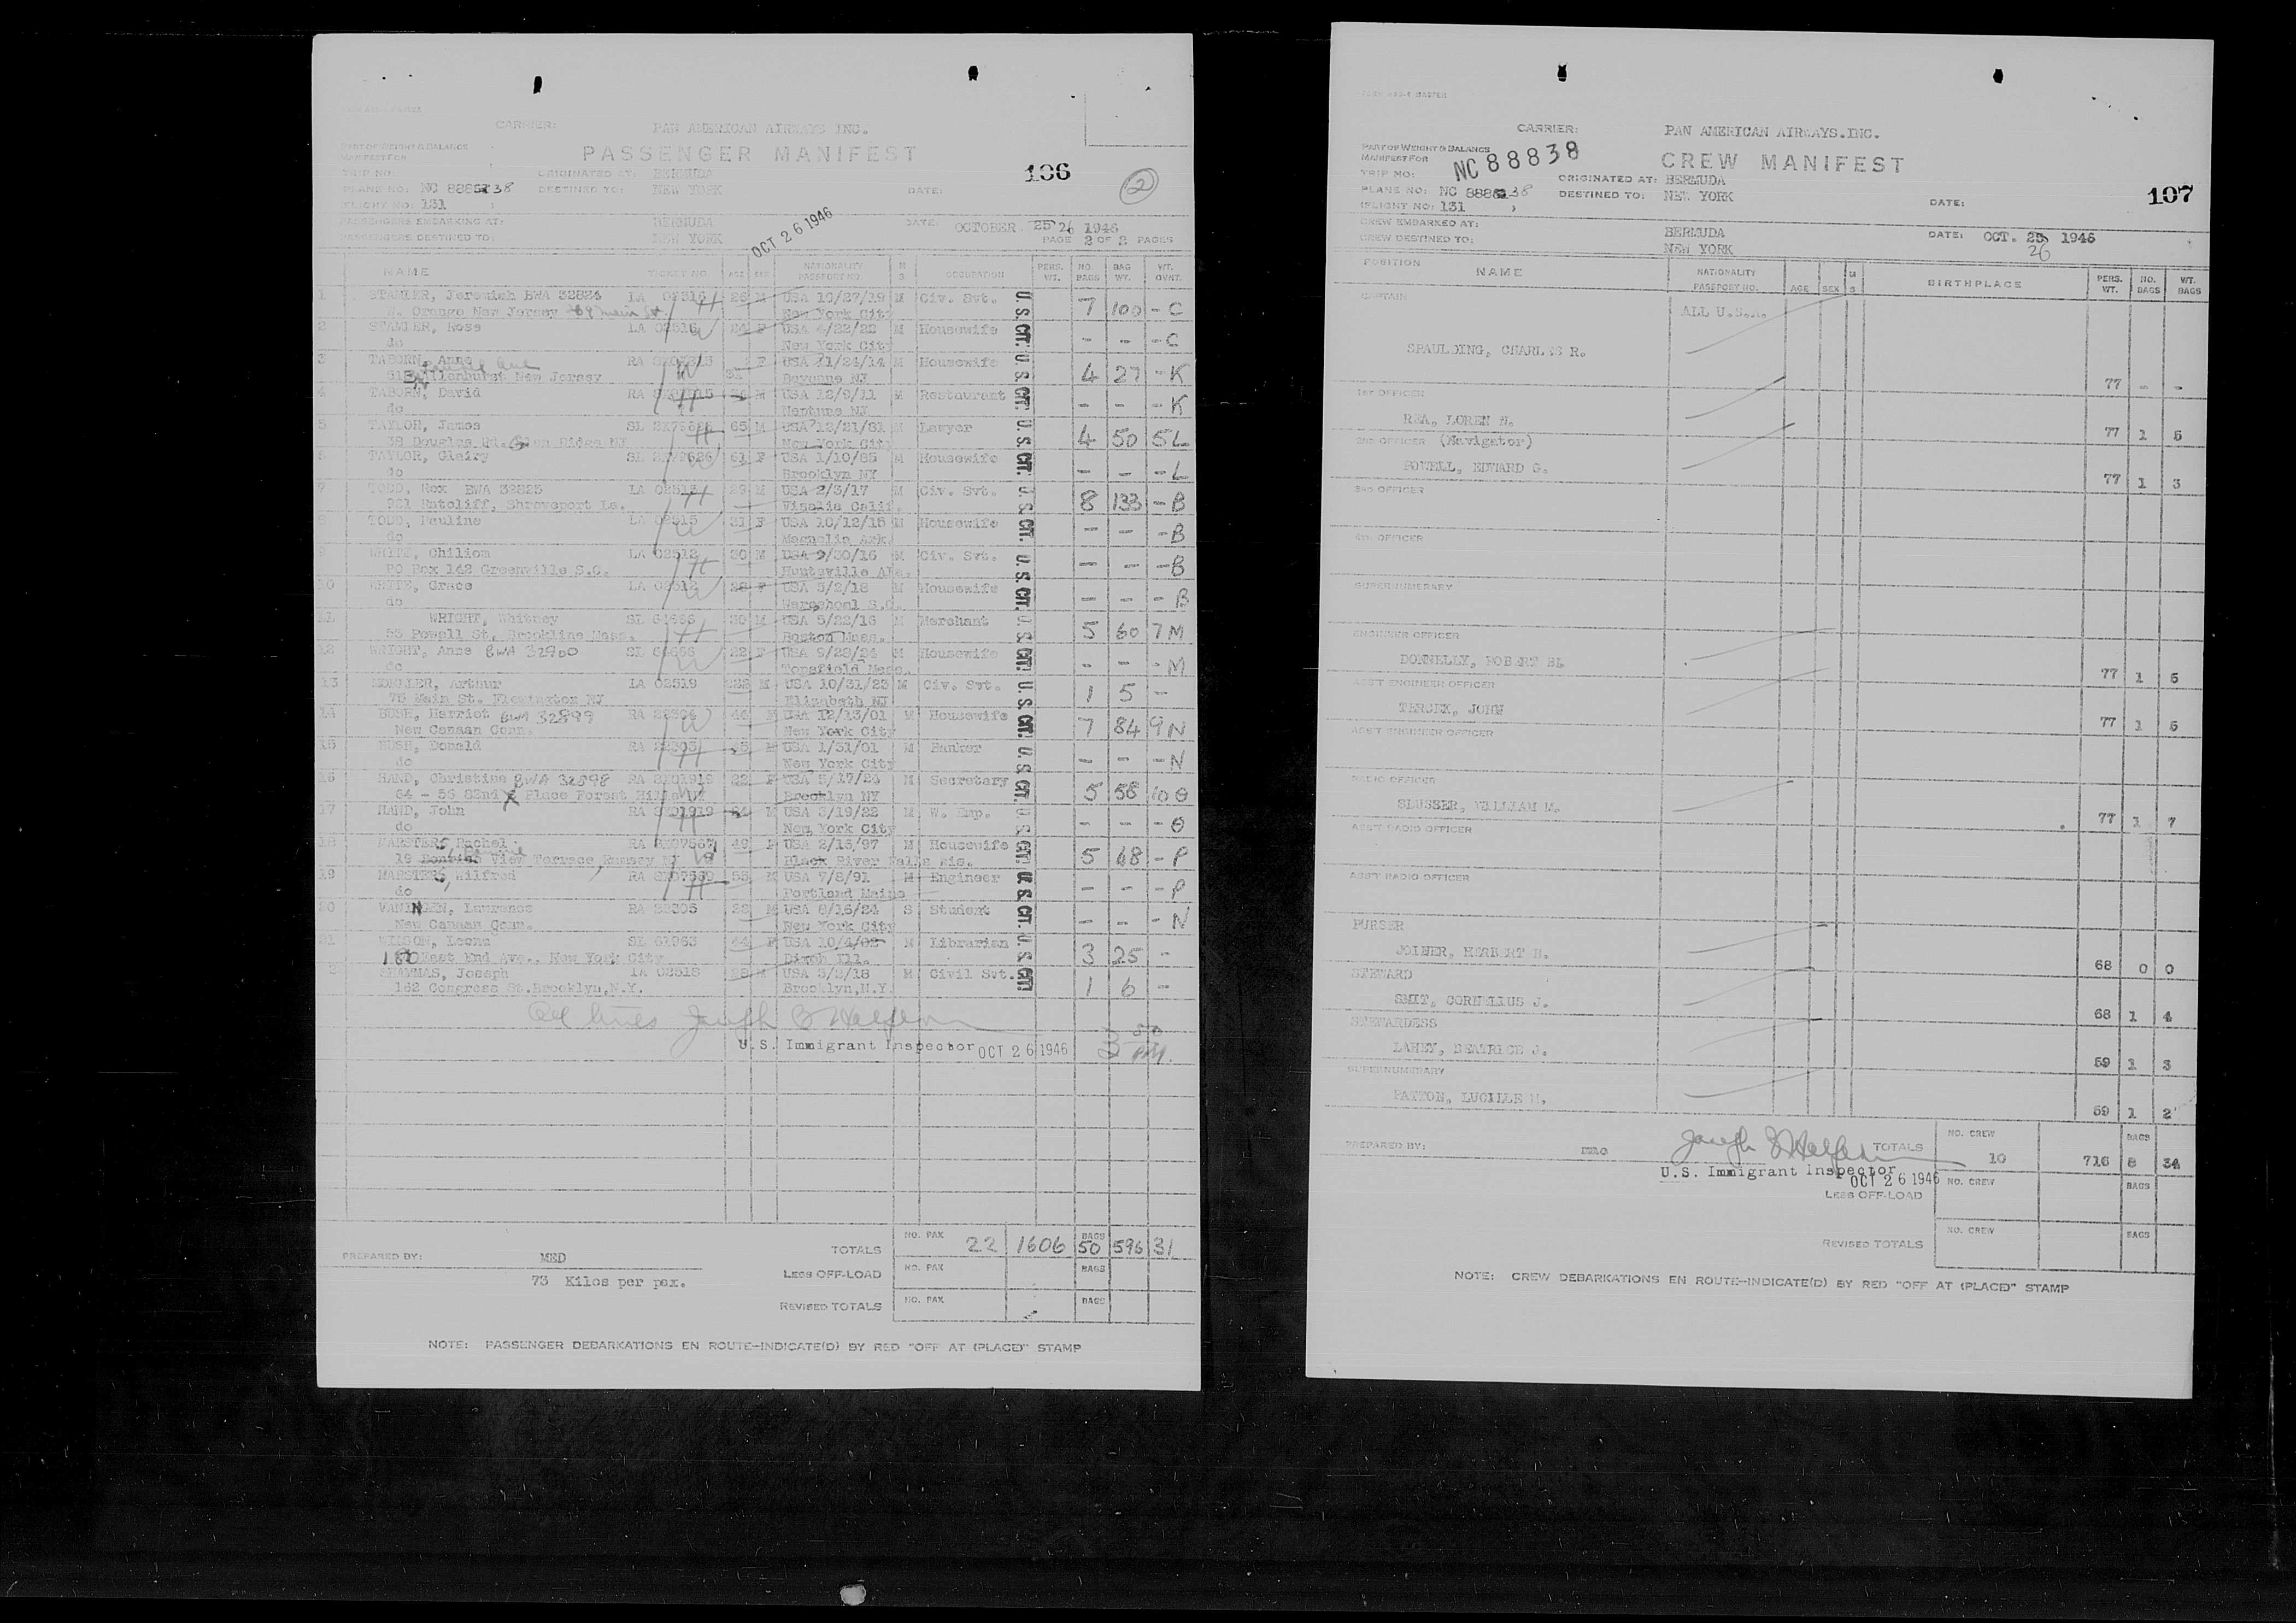 CARRIER: PAN AMERICAN AIRWAYS INC.
PART OF WEIGHT & BALANCE
MANIFEST FOR
PASSENGER MANIFEST
106
2
TRIP NO: ORIGINATED AT: BERMUDA
PLANE NO: NC 38 DESTINED TO: NEW YORK DATE:
FLIGHT NO: 131
PASSENGERS EMBARKING AT: BERMUDA DATE: OCTOBER 25 26 1946
PASSENGERS DESTINED TO: NEW YORK OCT 26 1946 PAGE 2 OF 2 PAGES
NAME TICKET NO. AGE SEX NATIONALITY PASSPORT NO. M S OCCUPATION PERS. WT. NO. BAGS BAG WT. WT. OVWT.
1 STAMLER, Jeremiah BWA 32824 LA 02516 H 26 M USA 10/27/19 M Civ. Svt. 7 100 - C
W. Orange New Jersey New York City
2 STAMLER, Rose LA 02516 W 24 F USA 4/22/22 M Housewife - - - C
do New York City
3 TABORN, Anne RA W F USA 1/24/14 M Housewife 4 27 - K
Allenhurst New Jersey Bayonne NJ
4 TABORN, David RA H M USA 12/9/11 M Restaurant - - - K
do Neptune NJ
5 TAYLOR, James SL H 65 M USA 12/21/81 M Lawyer 4 50 5 L
38 Douglas Glen Ridge NJ New York City
6 TAYLOR, Clairy SL W 61 F USA 1/10/85 M Housewife - - - L
do Brooklyn NY
7 TODD, Rex BWA 32825 LA 02515 H 29 M USA 2/3/17 M Civ. Svt. 8 133 - B
921 Ratcliff, Shreveport La. Visalia Calif.
8 TODD, Pauline LA 02515 W 31 F USA 10/12/15 M Housewife - - - B
do Magnolia Ark.
9 WHITE, Chiliom LA 02512 H 30 M USA 9/30/16 M Civ. Svt. - - - B
PO Box 142 Greenville S.C. Huntsville Ala.
10 WHITE, Grace LA 02512 W 28 F USA 3/2/18 M Housewife - - - B
do S.C.
11 WRIGHT, Whitney SL 61666 H 30 M USA 5/22/16 M Merchant 5 60 7 M
55 Powell St, Brookline Mass. Boston Mass.
12 WRIGHT, Anne BWA 32900 SL 61666 W 22 F USA 9/28/24 M Housewife - - - M
do Topsfield Mass.
13 Arthur LA 02519 M USA 10/31/23 M Civ. Svt. 1 5 -
75 Main St. Flemington NJ Elizabeth NJ
14 BUSH, Harriet BWA 32899 RA W 44 F USA 12/13/01 M Housewife 7 84 9 N
New Canaan Conn. New York City
15 BUSH, Donald RA H 45 M USA 1/31/01 M Banker - - - N
do New York City
16 HAND, Christine BWA 32898 RA W 22 F USA 5/17/24 M Secretary 5 58 10 O
64 - 56 82nd Place Forest Hills NY Brooklyn NY
17 HAND, John RA H 24 M USA 3/19/22 M W. Emp. - - - O
do New York City
18 MARSTERS, Rachel RA W 49 F USA 2/15/97 M Housewife 5 48 - P
19 View Terrace, Rumsey NJ Black River Falls Wis.
19 MARSTERS, Wilfred RA H 55 M USA 7/8/91 M Engineer - - - P
do Portland Maine
20 Lawrence RA 22305 22 M USA 8/16/24 S Student - - - N
New Canaan Conn. New York City
21 WILSON, Leone SL 61963 44 F USA 10/4/02 M Librarian 3 25 -
180 East End Ave., New York City Dixon Ill.
22 SHAMMAS, Joseph LA 02518 28 M USA 3/2/18 M Civil Svt. 1 6 -
162 Congress St. Brooklyn, N.Y. Brooklyn, N.Y.
U.S. CIT.
All lines Joseph E Halpern
U.S. Immigrant Inspector OCT 26 1946 3 50 PM.
PREPARED BY: MED
73 Kilos per pax.
TOTALS NO. PAX 22 1606 BAGS 50 596 31
LESS OFF-LOAD NO. PAX BAGS
REVISED TOTALS NO. PAX BAGS
NOTE: PASSENGER DEBARKATIONS EN ROUTE-INDICATE(D) BY RED "OFF AT (PLACE)" STAMP
CARRIER: PAN AMERICAN AIRWAYS.INC.
PART OF WEIGHT & BALANCE
MANIFEST FOR NC 88838
CREW MANIFEST
107
TRIP NO: ORIGINATED AT: BERMUDA
PLANE NO: NC 38 DESTINED TO: NEW YORK DATE:
FLIGHT NO: 131
CREW EMBARKED AT: BERMUDA DATE: OCT. 25 1946
CREW DESTINED TO: NEW YORK 26
POSITION NAME NATIONALITY PASSPORT NO. AGE SEX M S BIRTHPLACE PERS. WT. NO. BAGS WT. BAGS
CAPTAIN ALL U.S.A.
SPAULDING, CHARLES R. 77 - -
1ST OFFICER
REA, LOREN H. 77 1 5
2ND OFFICER (Navigator)
POWELL, EDWARD G. 77 1 3
3RD OFFICER
4TH OFFICER
SUPERNUMERARY
ENGINEER OFFICER
DONNELLY, ROBERT 77 1 5
ASST ENGINEER OFFICER
TERCEK, JOHN 77 1 5
ASST ENGINEER OFFICER
RADIO OFFICER
SLUSSER, WILLIAM M. 77 1 7
ASST RADIO OFFICER
ASST RADIO OFFICER
PURSER
JOINER, HERBERT H. 68 0 0
STEWARD
SMIT, CORNELIUS J. 68 1 4
STEWARDESS
LAHEY, BEATRICE J. 59 1 3
SUPERNUMERARY
PATTON, LUCILLE M. 59 1 2
PREPARED BY: Joseph E Halpern TOTALS NO. CREW 10 716 BAGS 8 34
U.S. Immigrant Inspector OCT 26 1946
LESS OFF-LOAD NO. CREW BAGS
REVISED TOTALS NO. CREW BAGS
NOTE: CREW DEBARKATIONS EN ROUTE-INDICATE(D) BY RED "OFF AT (PLACE)" STAMP